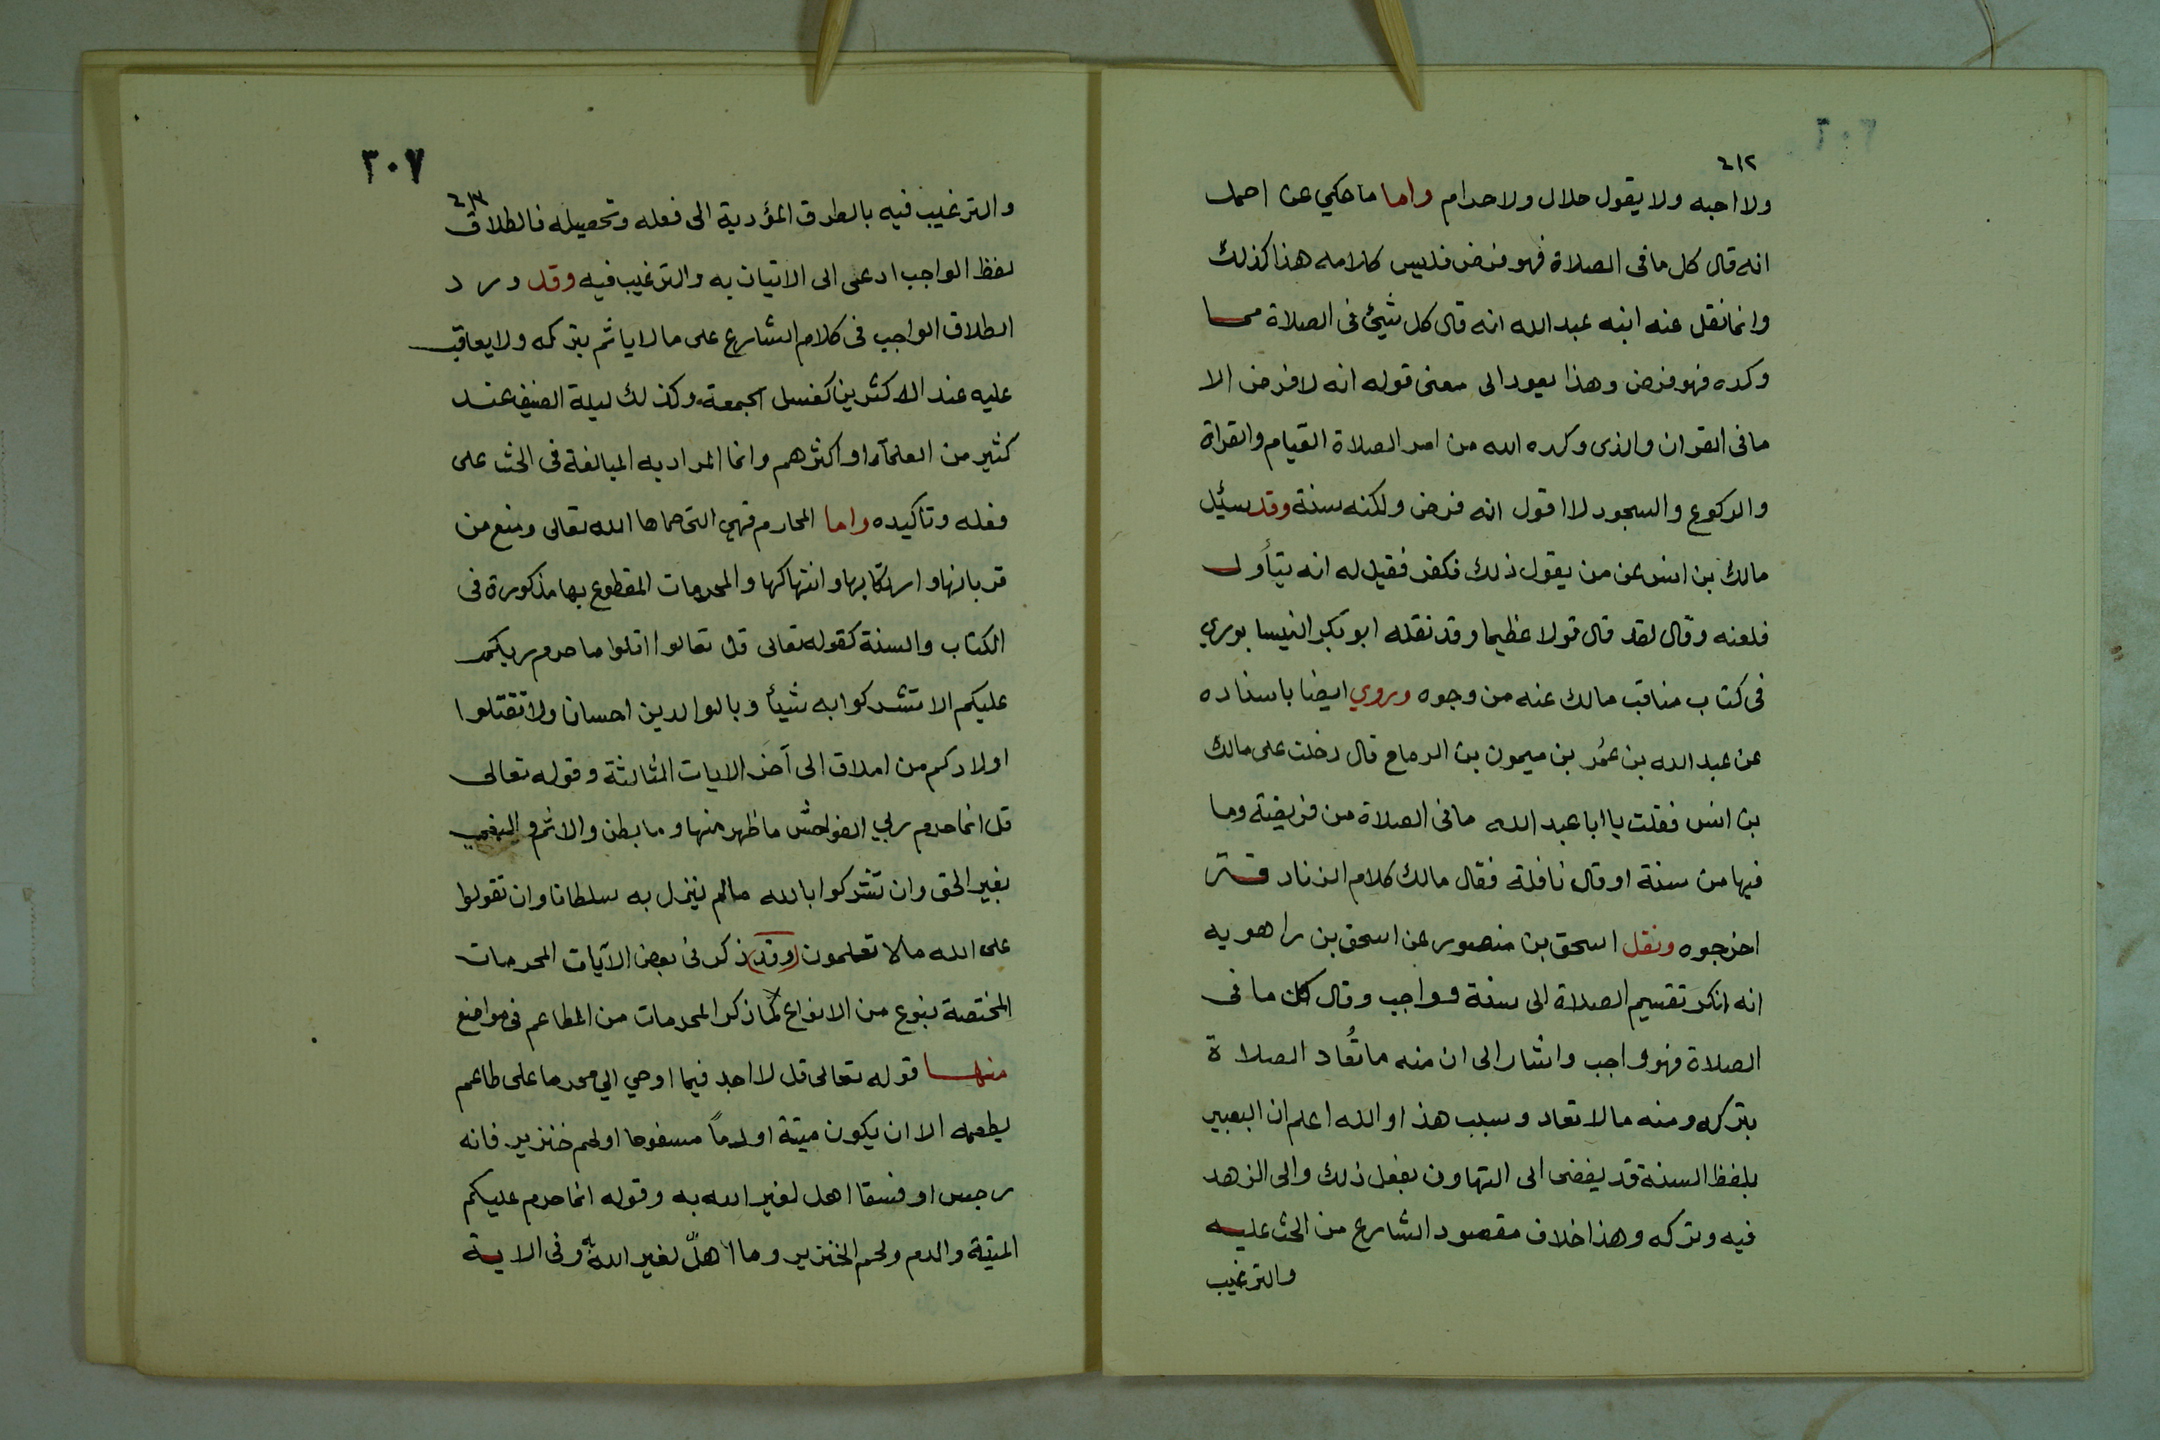 ٣٠٦
٤١٢
ولا احبه ولا يقول حلال ولا حرام واما ما حكي عن احمد
انه قال كل ما فى الصلاة فهو فرض فليس كلامه هذا كذلك
وانما نقل عنه ابنه عبد الله انه قال كل شيئ فى الصلاة مما
وكده فهو فرض وهذا يعود الى معنى قوله انه لا فرض الا
ما فى القران والذى وكده الله من امر الصلاة القيام والقراة
والركوع والسجود لا اقول انه فرض ولكنه سنة وقد سئيل
مالك بن انس عن من يقول ذلك فكفر فقيل له انه يتأول
فلعنه وقال لقد قال قولا عظيما وقد نقله ابو بكر النيسابوري
فى كتاب مناقب مالك عنه من وجوه وروي ايضا باسناده
عن عبد الله بن عمُر بن ميمون بن الرماح قال دخلت على مالك
بن انس فقلت يا ابا عبد الله ما فى الصلاة من فريضة وما
فيها من سنة او قال نافلة فقال مالك كلام الزنادقة
اخرجوه ونقل اسحق بن منصور عن اسحق بن راهويه
انه انكر تقسيم الصلاة الى سنة وواجب وقال كل ما فى
الصلاة فهو واجب واشار الى ان منه ما تُعاد الصلاة
بتركه ومنه ما لا تعاد وسبب هذا والله اعلم ان التعبير
بلفظ السنة قد يفضى الى التهاون بفعل ذلك والى الزهد
فيه وتركه وهذا خلاف مقصود الشارع من الحث عليه
والترغيب
٣٠٧
٤١٣
والترغيب فيه بالطرق المؤدية الى فعله وتحصيله فاطلاق
لفظ الواجب ادعى الى الاتيان به والترغيب فيه وقد ورد
اطلاق الواجب فى كلام الشارع على ما لا ياثم بتركه ولا يعاقب
عليه عند الاكثرين كغسل الجمعة وكذلك ليلة الضيف عند
كثير من العلمآء او اكثرهم وانما المراد به المبالغة فى الحث على
فعله وتاكيده واما المحارم فهى التى حماها الله تعالى ومنع من
قربانها وارتكابها وانتهاكها والمحرمات المقطوع بها مذكورة فى
الكتاب والسنة كقوله تعالى قل تعالوا اتلوا ما حرم ربكم
عليكم الا تشركوا به شيئأ وبالوالدين احسانا ولا تقتلوا
اولادكم من املاق الى آخر الايات الثالثة وقوله تعالى
قل انما حرم ربي الفواحش ما ظهر منها وما بطن والاثم والبغي
بغير الحق وان تشركوا بالله مالم ينزل به سلطانا وان تقولوا
على الله ما لا تعلمون (وقد) ذكر فى بعض الآيات المحرمات
المختصة بنوع من الانواع كما ذكر المحرمات من المطاعم فى مواضع
منها قوله تعالى قل لا اجد فيما اوحي الي محرما على طاعم
يطعمه الا ان يكون ميتة او دماً مسفوحا او لحم خنزير فانه
رجس او فسقا اهل لغير الله به وقوله انما حرم عليكم
الميتة والدم ولحم الخنزير وما اهلّ لغير الله به وفى الاية